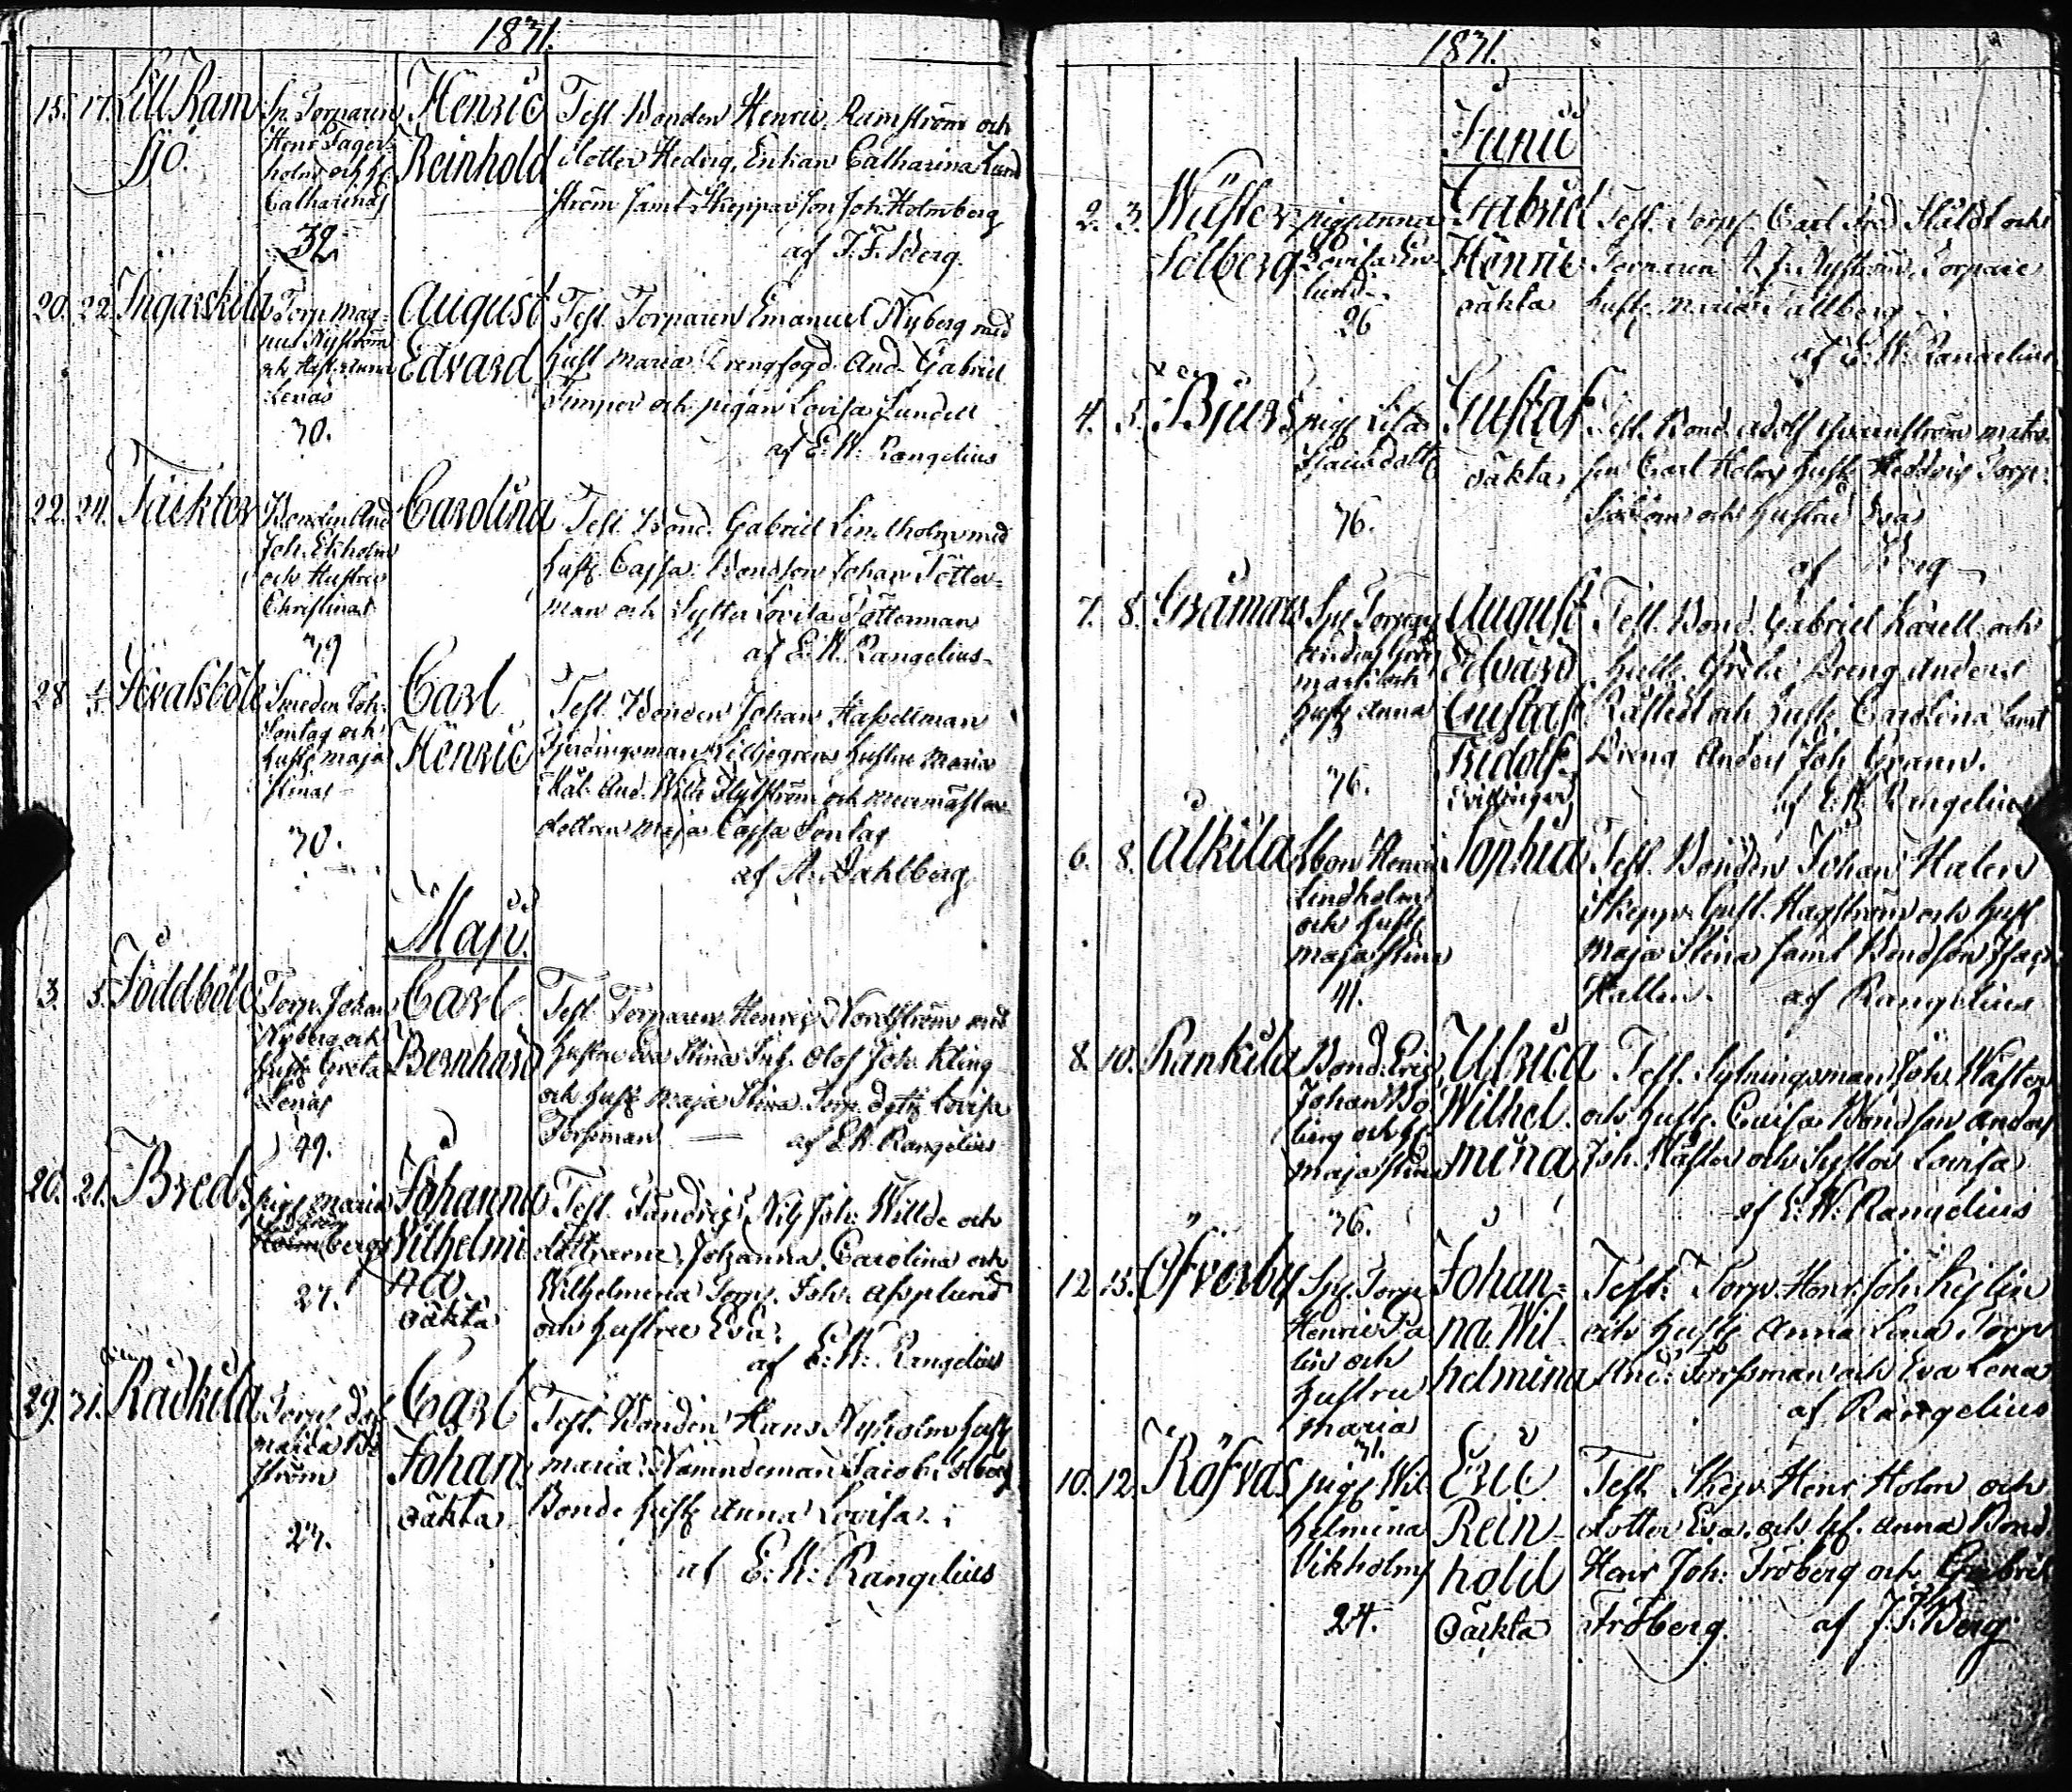 1871.
15. 17. Lill Ram
sjö.
Sp. Torparen
Henr Fager
holm och h.
Catharina
32
Henric
Reinhold
Test. Bonden Henric Ramström och
dotter Hedvig, Enkan Catharina Lund
ström samt Skepparson Joh. Holmberg
af J. F. Berg.
20. 22. Ingarskila
Torp. Mag-
nus Nyström
och Hust.
Lena
30.
August
Edvard
Test. Torparen Emanuel Nyberg med
hust Maria Drengfogd. And. Gabriel
och pigan Lovisa Sundell
af E. W. Rangelius
22. 24. Täcktor
Bonden And
Joh. Ekholm
och Hustru
Christina
39
Carolina
Test. Bond. Gabriel Lindholm med
hust. Cajsa. Bondson Johan Tötter-
man och Syster Lovisa Tötterman
af E. W. Rangelius
28
Smeden Joh.
Sontag och
hust. Maja
Stina
30.
Carl
Henric
Test. Bonden Johan Hasselman
Fjerdingsman Liljegrens hustru Maria
And. Wilh. och
dottren Maja Cajsa Sontag
af A. Dahlberg.
Maji.
3. 5. Joddböle
Torp. Johan
Nyberg och
hust. Greta
Lena
49.
Carl
Bernhard
Test. Torparen Henric Nordström med
hustru Eva Stina Olof Joh. Kling
och hust Maja Stina Torp. dott. Lovisa
Torsman af E. W. Rangelius
20. 21. Breds
pig. Maria
27.
Johanna
Vilhelmi
na.
oäkta
Test. Nils Joh. Willde och
döttrarne Johanna, Carolina och
Wilhelmina Torp. Joh. Asplund
och hustru Eva.
af E. W. Rangelius
29. 31. Rådkila
Torp. dot
Maria
ström
27.
Carl
Johan
oäkta
Test. Bonden Hans Nyholm hust
Maria. Nämndeman Jacob
Bonde hust Anna Lovisa.
af E. W. Rangelius
1871.
Junii
2. 3. Wäster
Solberg
pig. Anna
Lovisa
lund
26
Gabriel
Henric
oäkta
Test. Torp. Carl Fred och
Torparen A. J. Nyström, Torpare
hust. Maria Tallberg
af E. W. Rangelius
4. 5. Bjurs
pig. Lisa
Isaksdott
36.
Gustaf
oäkta
Test. Bond. Adolf
Carl Holm hust Hedvig Torp.
och hustru Eva
af Berg
7. 8. Gråmars
Torp.
Anders
och
hust. Anna
36.
August
Edvard
Gustaf
Ridolf
tvillingar
Test. Bond. Gabriel och
hust. Dreng Anders
och hust. Carolina samt
Dreng Anders Joh Grann.
af E. W. Rangelius
6. 8. Älkila
Henric
Lindholm
och hust
Maja Stina
41.
Sophia
Test. Bonden Johan Halen
Skepp. Gust. Hagström och hust
Maja Stina samt Bondson Isac
Hallen. af Rangelius
8. 10. Rankila
Bond. Eric
Johan Bo
berg och h.
Maja Stina
36.
Ulrica
Wilhel.
mina
Test. Sytningsman Joh. Wäster
och hust. Bondson Anders
Joh. Wäster och Syster Lovisa
af E. W. Rangelius
12. 15. Öfverby
Sp. Torp
Henric
lin och
hustru
Maria
31.
Johan-
na Wil-
helmina
Test. Torp. Henr. Joh.
och hust Anna Lena Torp
And. Torsman och Eva Lena
af Rangelius
10. 12. Räfvas
pig. Wil
helmina
Vikholm
24.
Eric
Rein-
hold
oäkta
Test. Skepp. Henr Holm och
dotter Eva. och hf. Anna Bond.
Henr Joh. Fröberg och Gabriel
Fröberg. af J. F. Berg